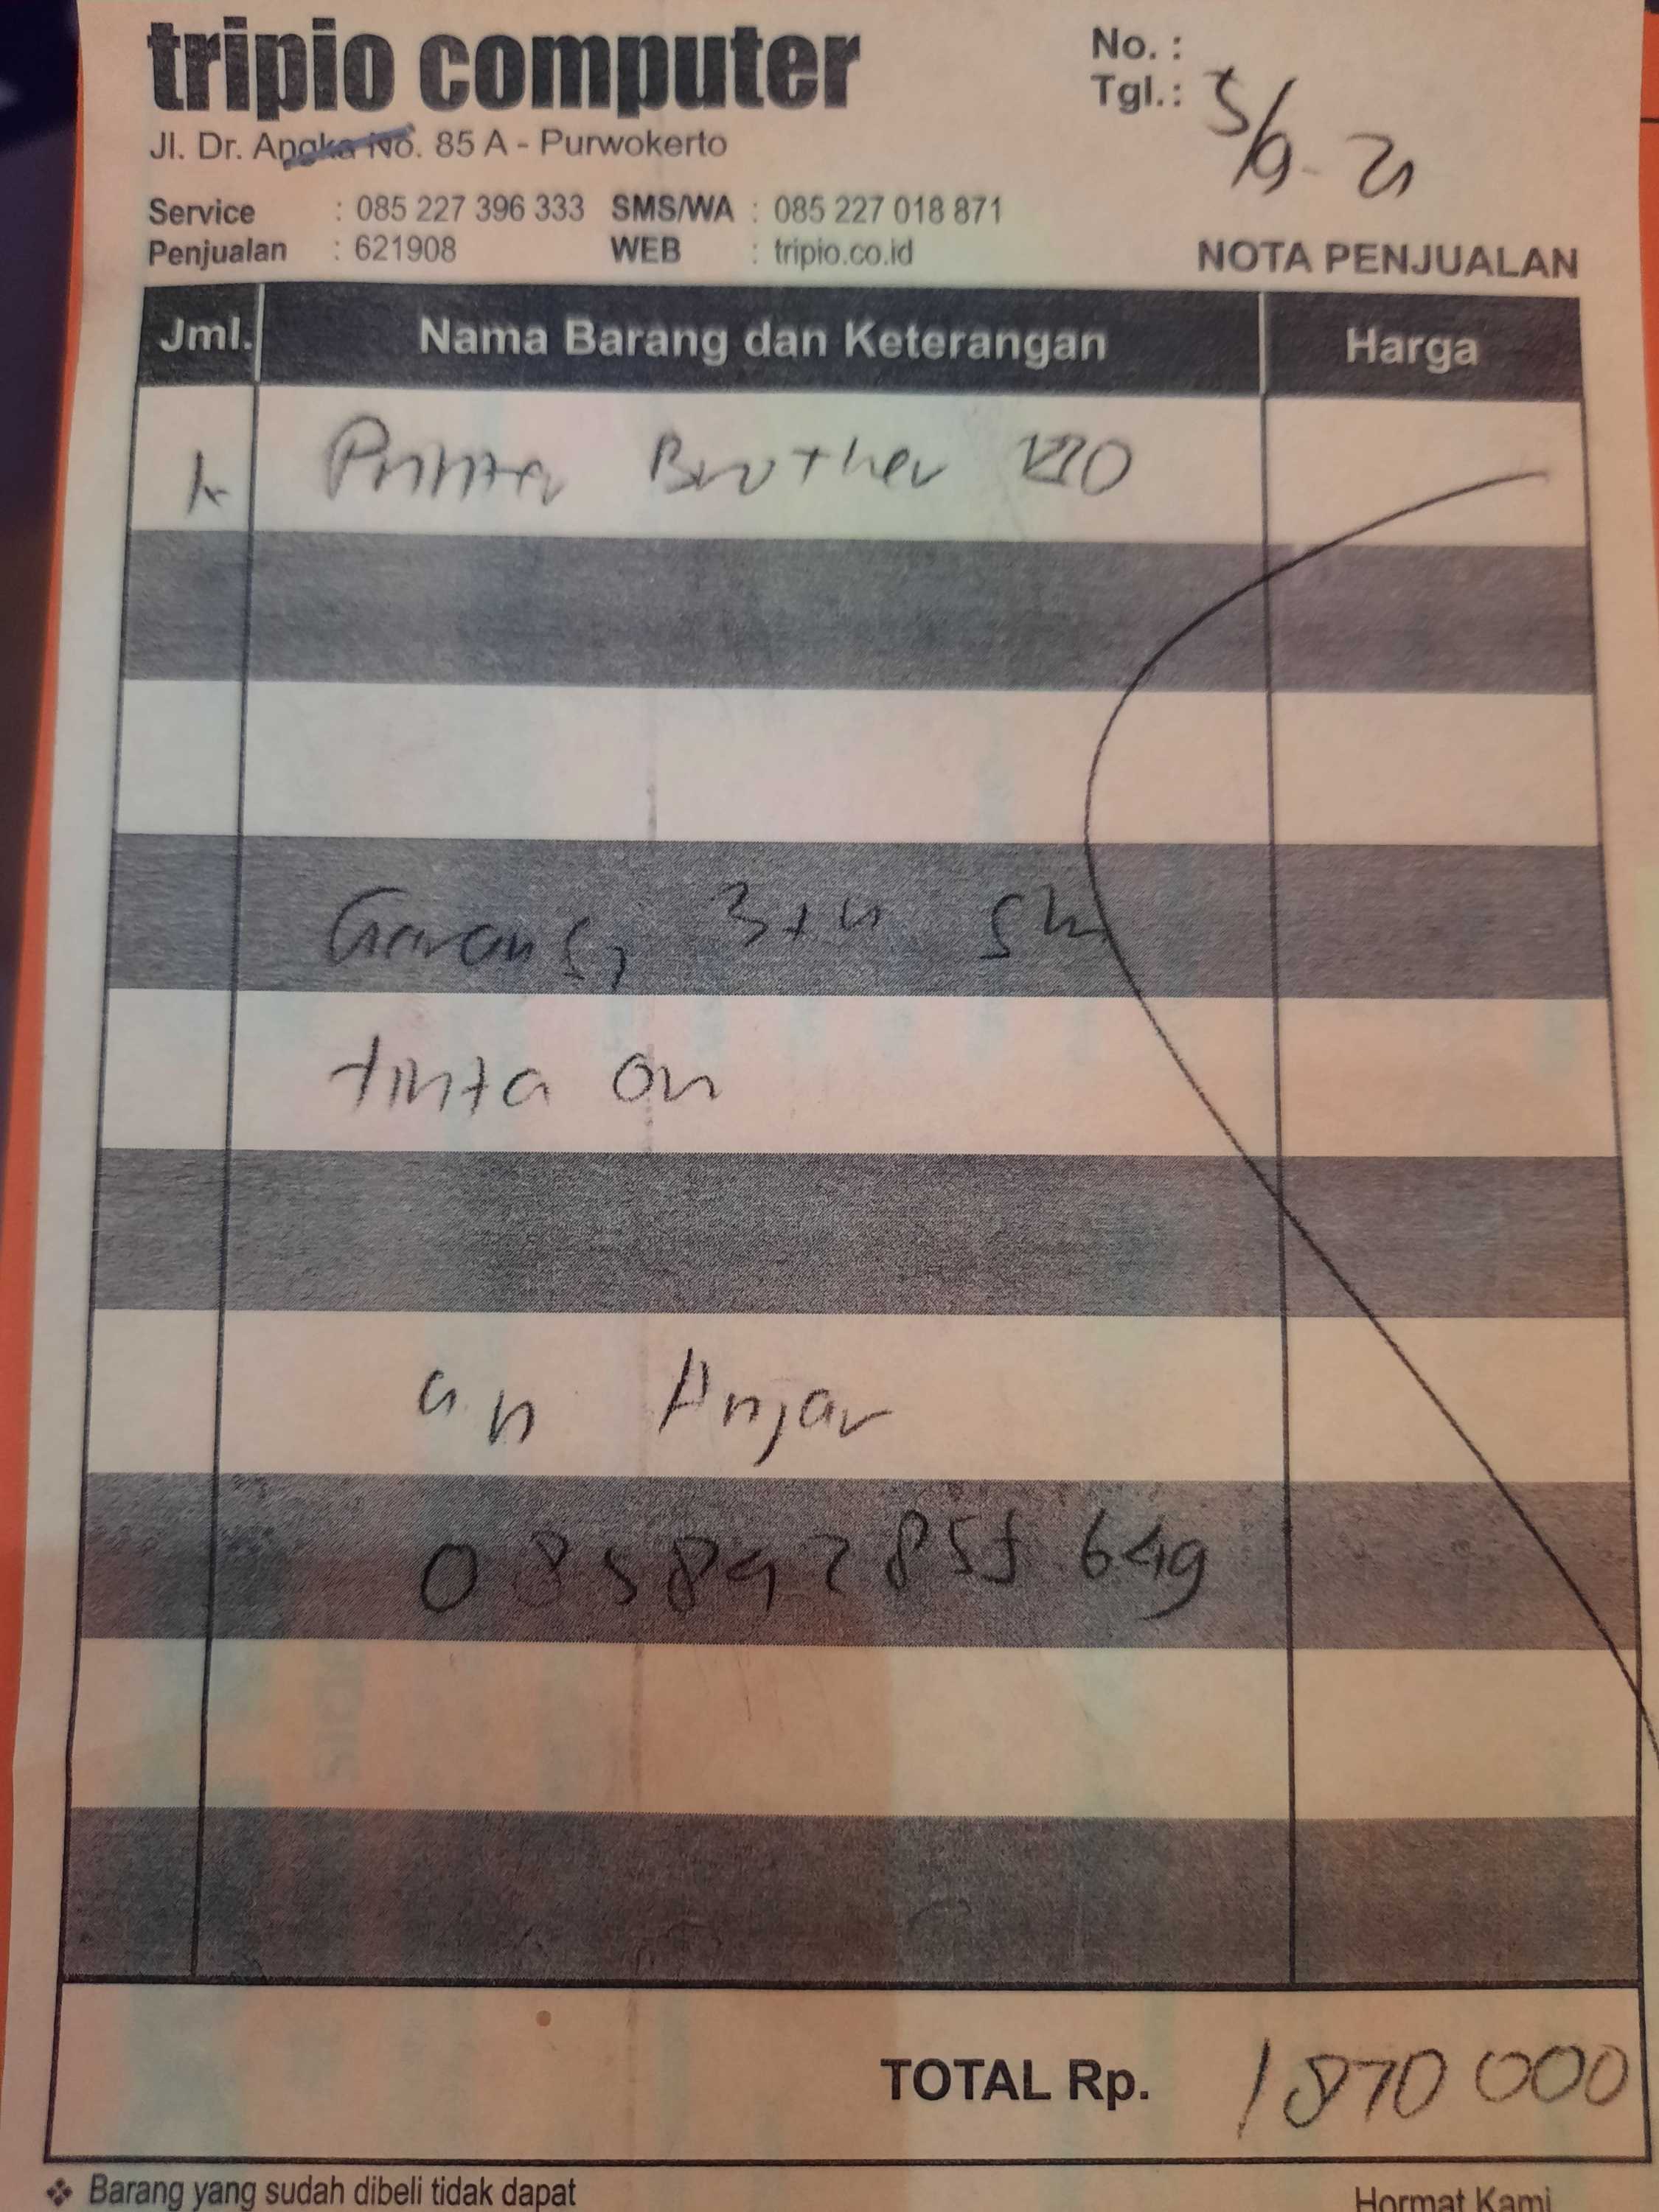 tripio computer
No. :
Tgl. : 5/9-21
Jl. Dr. Angka No. 85 A - Purwokerto
Service : 085 227 396 333 SMS/WA : 085 227 018 871
Penjualan : 621908 WEB : tripio.co.id
NOTA PENJUALAN
Jml. Nama Barang dan Keterangan Harga
Printer Brother
Garansi 3th
tinta on
an Anjar
TOTAL Rp. 1870 000
❖ Barang yang sudah dibeli tidak dapat
Hormat Kami